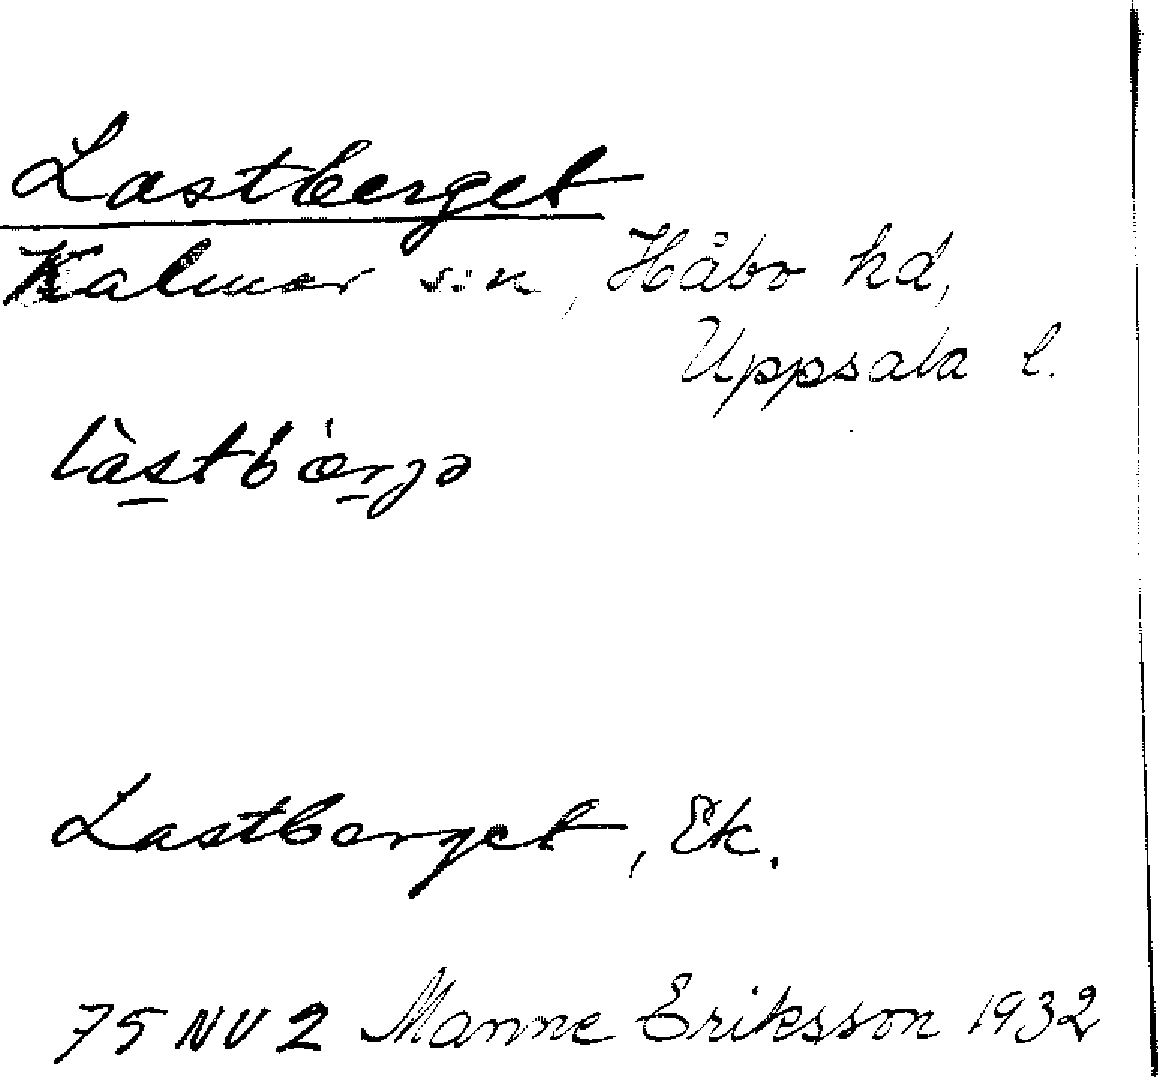 Lastberget
Kalmar s:n, Håbo hd,
Uppsala l.
làstbær̀jə
Lastberget, Ek.
75 NV 2 Manne Eriksson 1932